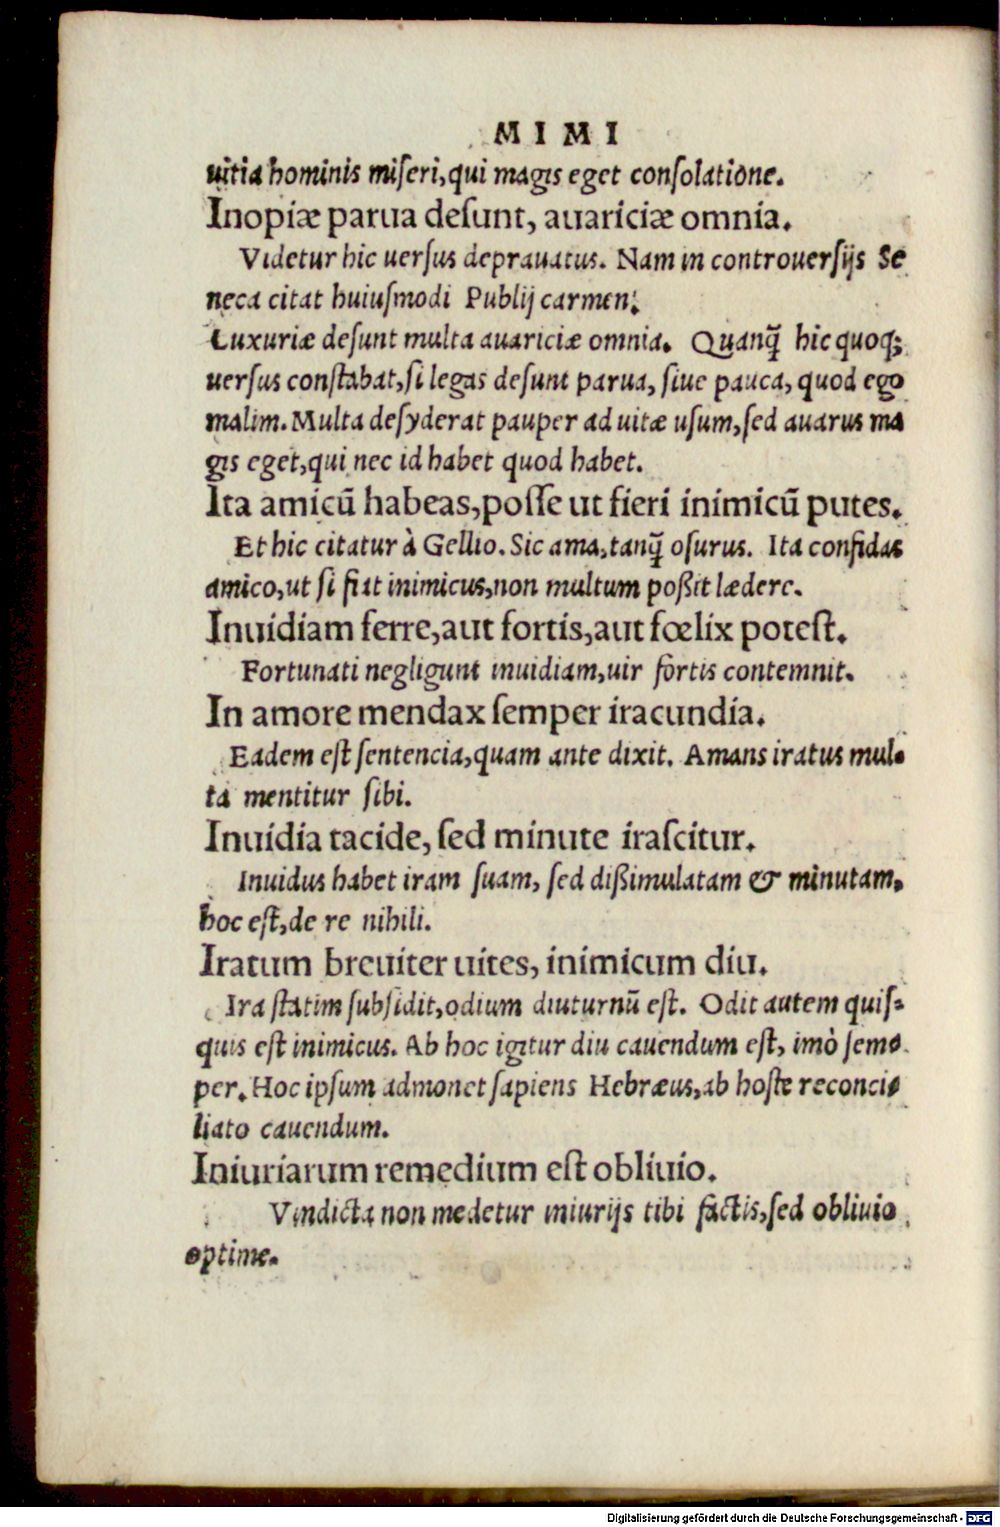 MIMI
uitia hominis miſeri, qui magis eget conſolatione.
Inopiæ parua deſunt, auariciæ omnia.
Videtur hic uerſus deprauatus. Nam in controuerſijs Se
neca citat huiuſmodi Publij carmen.
Luxuriæ deſunt multa auariciæ omnia. Quanq̃ hic quoq;
uerſus conſtabat, ſi legas deſunt parua, ſiue pauca, quod ego
malim. Multa deſyderat pauper ad uitæ uſum, ſed auarus ma
gis eget, qui nec id habet quod habet.
Ita amicũ habeas, poſſe ut fieri inimicũ putes.
Et hic citatur à Gellio. Sic ama, tanq̃ oſurus. Ita confidas
amico, ut ſi fiat inimicus, non multum poßit lædere.
Inuidiam ferre, aut fortis, aut fœlix poteſt.
Fortunati negligunt inuidiam, uir fortis contemnit.
In amore mendax ſemper iracundia.
Eadem eſt ſentencia, quam ante dixit. Amans iratus mul-
ta mentitur ſibi.
Inuidia tacide, ſed minute iraſcitur.
Inuidus habet iram ſuam, ſed dißimulatam & minutam,
hoc eſt, de re nihili.
Iratum breuiter uites, inimicum diu.
Ira ſtatim ſubſidit, odium diuturnũ eſt. Odit autem quiſ-
quis eſt inimicus. Ab hoc igitur diu cauendum eſt, imò ſem-
per. Hoc ipſum admonet ſapiens Hebræus, ab hoſte reconci-
liato cauendum.
Iniuriarum remedium eſt obliuio.
Vindicta non medetur iniurijs tibi factis, ſed obliuio
optime.
Digitalisierung gefördert durch die Deutsche Forschungsgemeinschaft - DFG